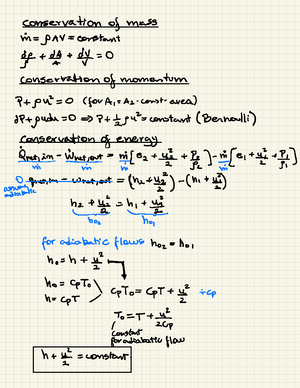 conservation of mass
ṁ = ρAV = constant
dρ/ρ + dA/A + dV/V = 0
conservation of momentum
P + ρu² = 0 (for A₁ = A₂ - const. area)
dP + ρudu = 0 ⇒ P + 1/2 ρu² = constant (Bernoulli)
conservation of energy
Q̇net,in/ṁ - Ẇnet,out/ṁ = ṁ/ṁ [e₂ + u₂²/2 + P₂/ρ₂] - ṁ/ṁ [e₁ + u₁²/2 + P₁/ρ₁]
0 qnet,in - wnet,out = (h₂ + u₂²/2) - (h₁ + u₁²/2)
assume adiabatic
h₂ + u₂²/2 = h₁ + u₁²/2
h₀₂ h₀₁
for adiabatic flows h₀₂ = h₀₁
h₀ = h + u²/2
h₀ = CpT₀
h = CpT
CpT₀ = CpT + u²/2 ÷Cp
T₀ = T + u²/2Cp
constant
for adiabatic flow
h + u²/2 = constant